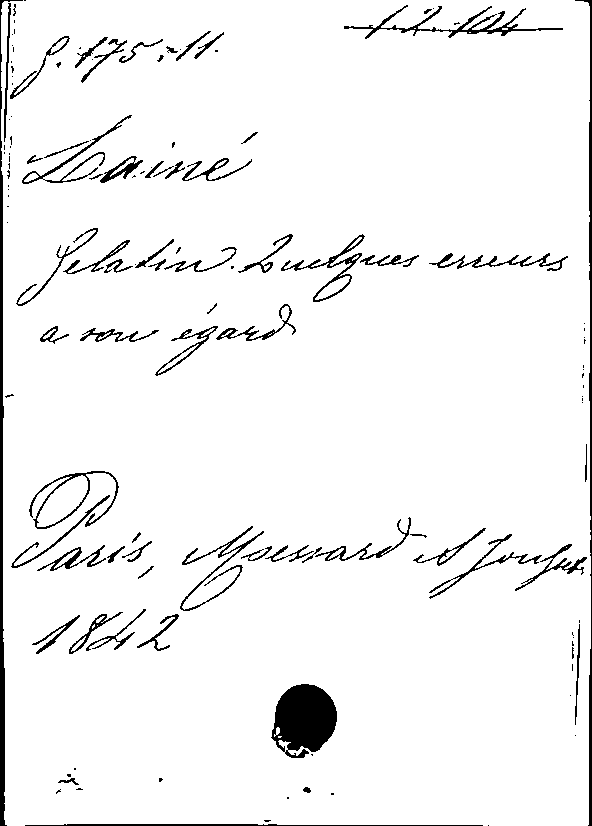 1.2.104
G. 175.11.
Lainé
Gelatin. Quelques erreurs
a son égard
Paris, Moessard et Jousset
1842